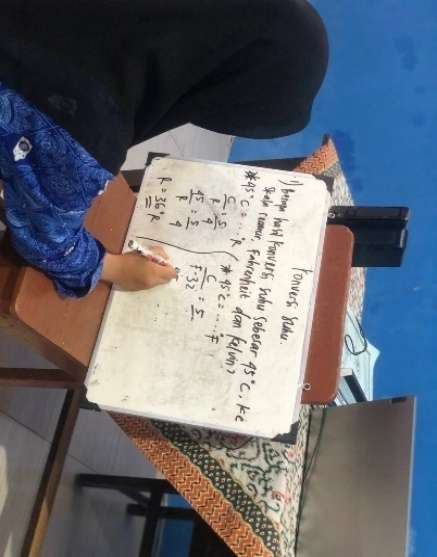 Konversi Suhu.
1) berapa hasil konversi suhu sebesar 45°C, ke
skala reamur, Fahrenheit dan kelvin?
* 45°C = ... °R
C/R = 5/4
45/R = 5/4
R = 36°R
* 45°C = .... °F
C/F-32 = 5